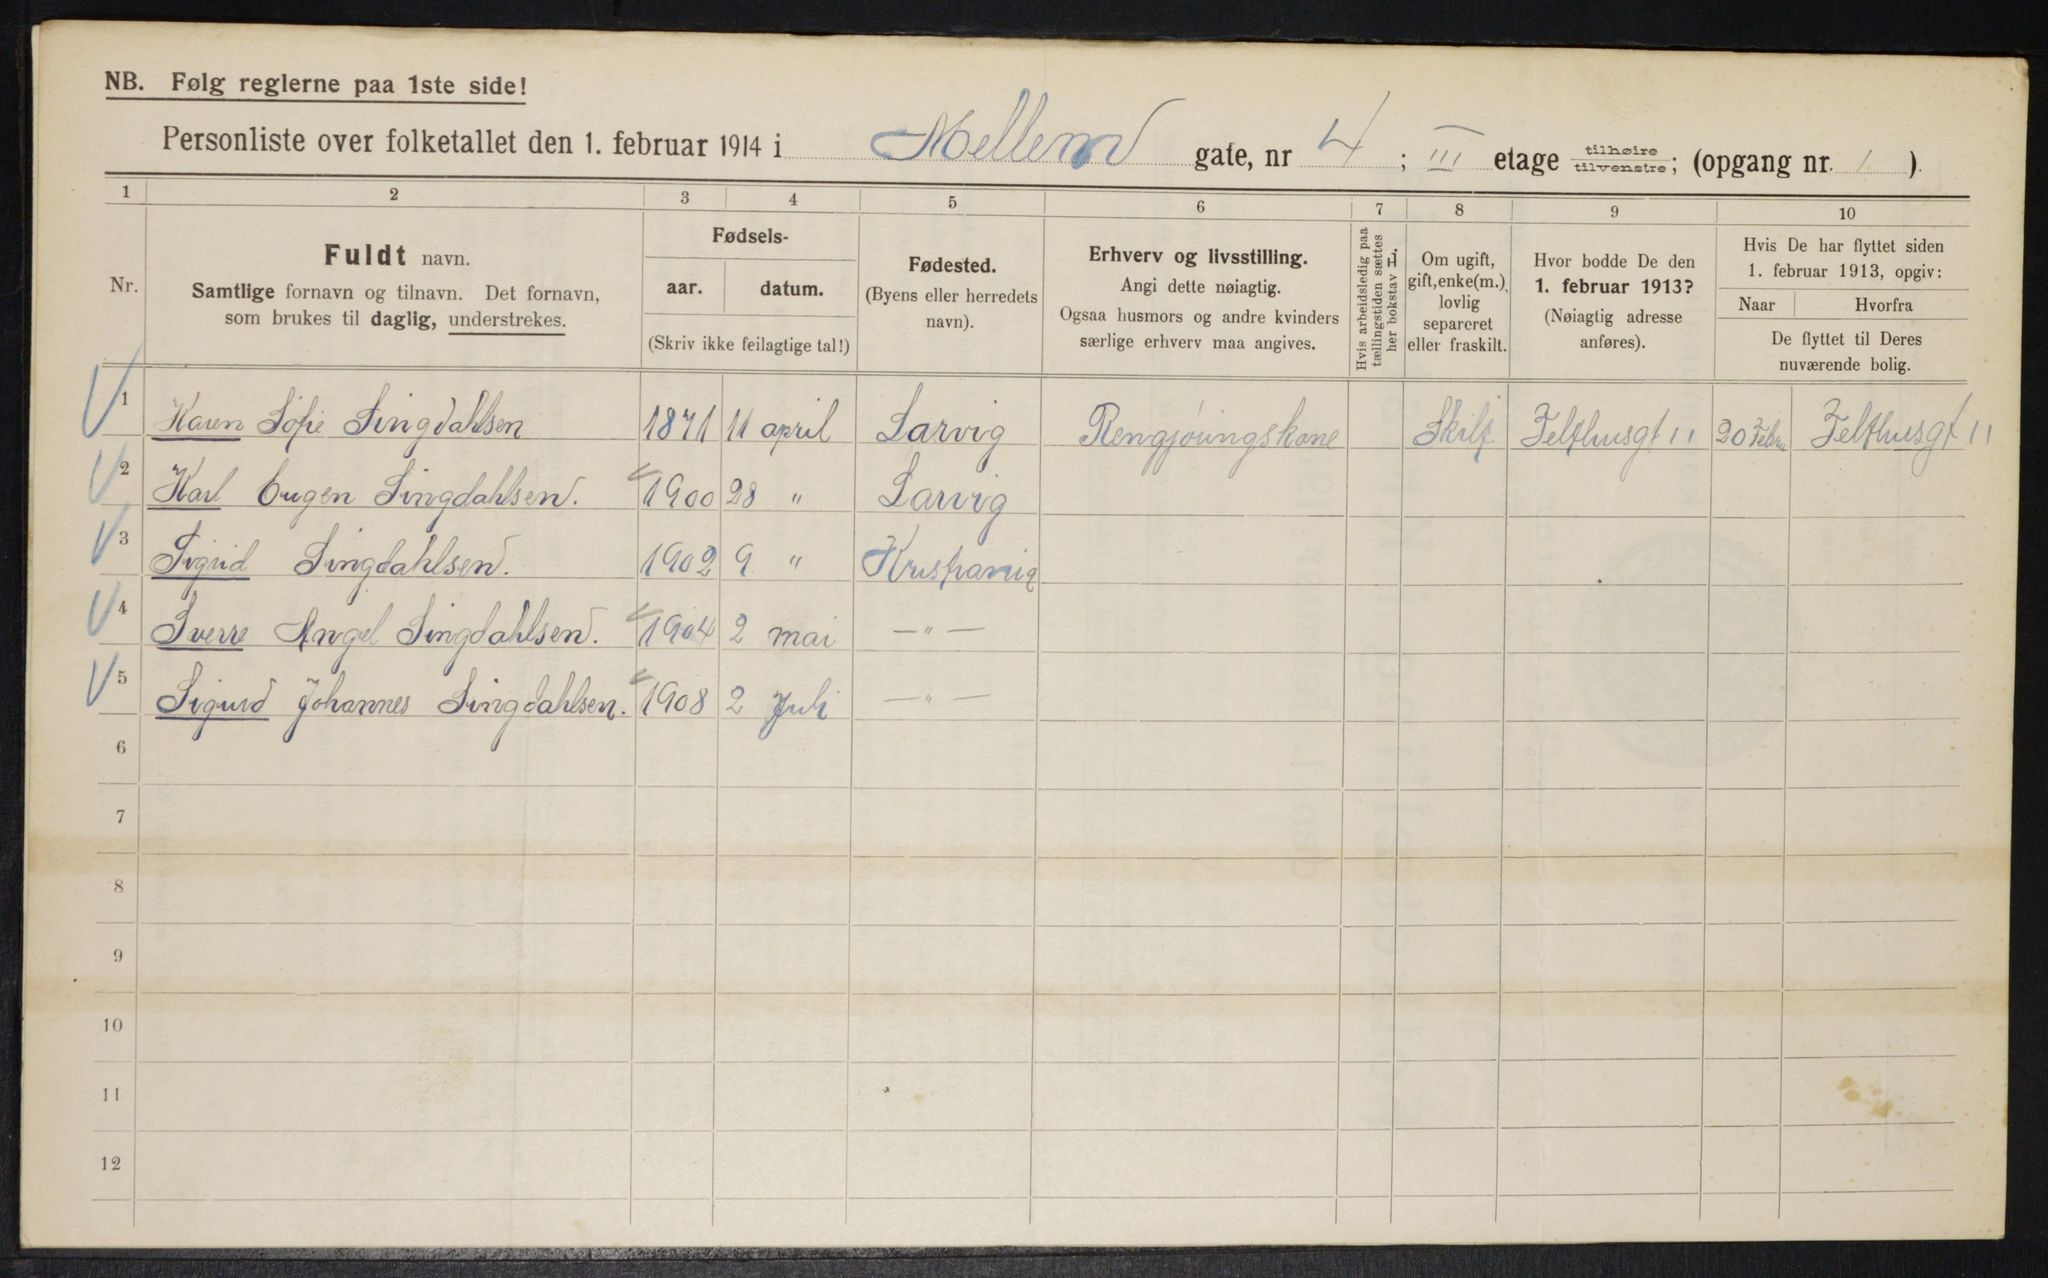 NB. Følg reglerne paa 1ste side!
Personliste over folketallet den 1. februar 1914 i Mellem gate, nr 4 ; III etage tilhøire / tilvenstre; (opgang nr. 1 ).
1 2 3 4 5 6 7 8 9 10
Nr.
Fuldt navn.
Samtlige fornavn og tilnavn. Det fornavn,
som brukes til daglig, understrekes.
Fødsels-
aar. datum.
(Skriv ikke feilagtige tal!)
Fødested.
(Byens eller herredets
navn).
Erhverv og livsstilling.
Angi dette nøiagtig.
Ogsaa husmors og andre kvinders
særlige erhverv maa angives.
Hvis arbeidsledig paa
tællingstiden sættes
her bokstav L.
Om ugift,
gift, enke(m.),
lovlig
separeret
eller fraskilt.
Hvor bodde De den
1. februar 1913?
(Nøiagtig adresse
anføres).
Hvis De har flyttet siden
1. februar 1913, opgiv:
Naar Hvorfra
De flyttet til Deres
nuværende bolig.
1 Karen Sofie Singdahlsen 1871 11 april Larvig Rengjøringskone Skilt Felthusgt 11 20 Febru Felthusgt 11
2 Karl Eugen Singdahlsen. 1900 28 " Larvig
3 Sigrid Singdahlsen. 1902 9 " Kristiania
4 Sverre Angel Singdahlsen. 1904 2 mai — " —
5 Sigurd Johannes Singdahlsen. 1908 2 Juli — " —
6
7
8
9
10
11
12